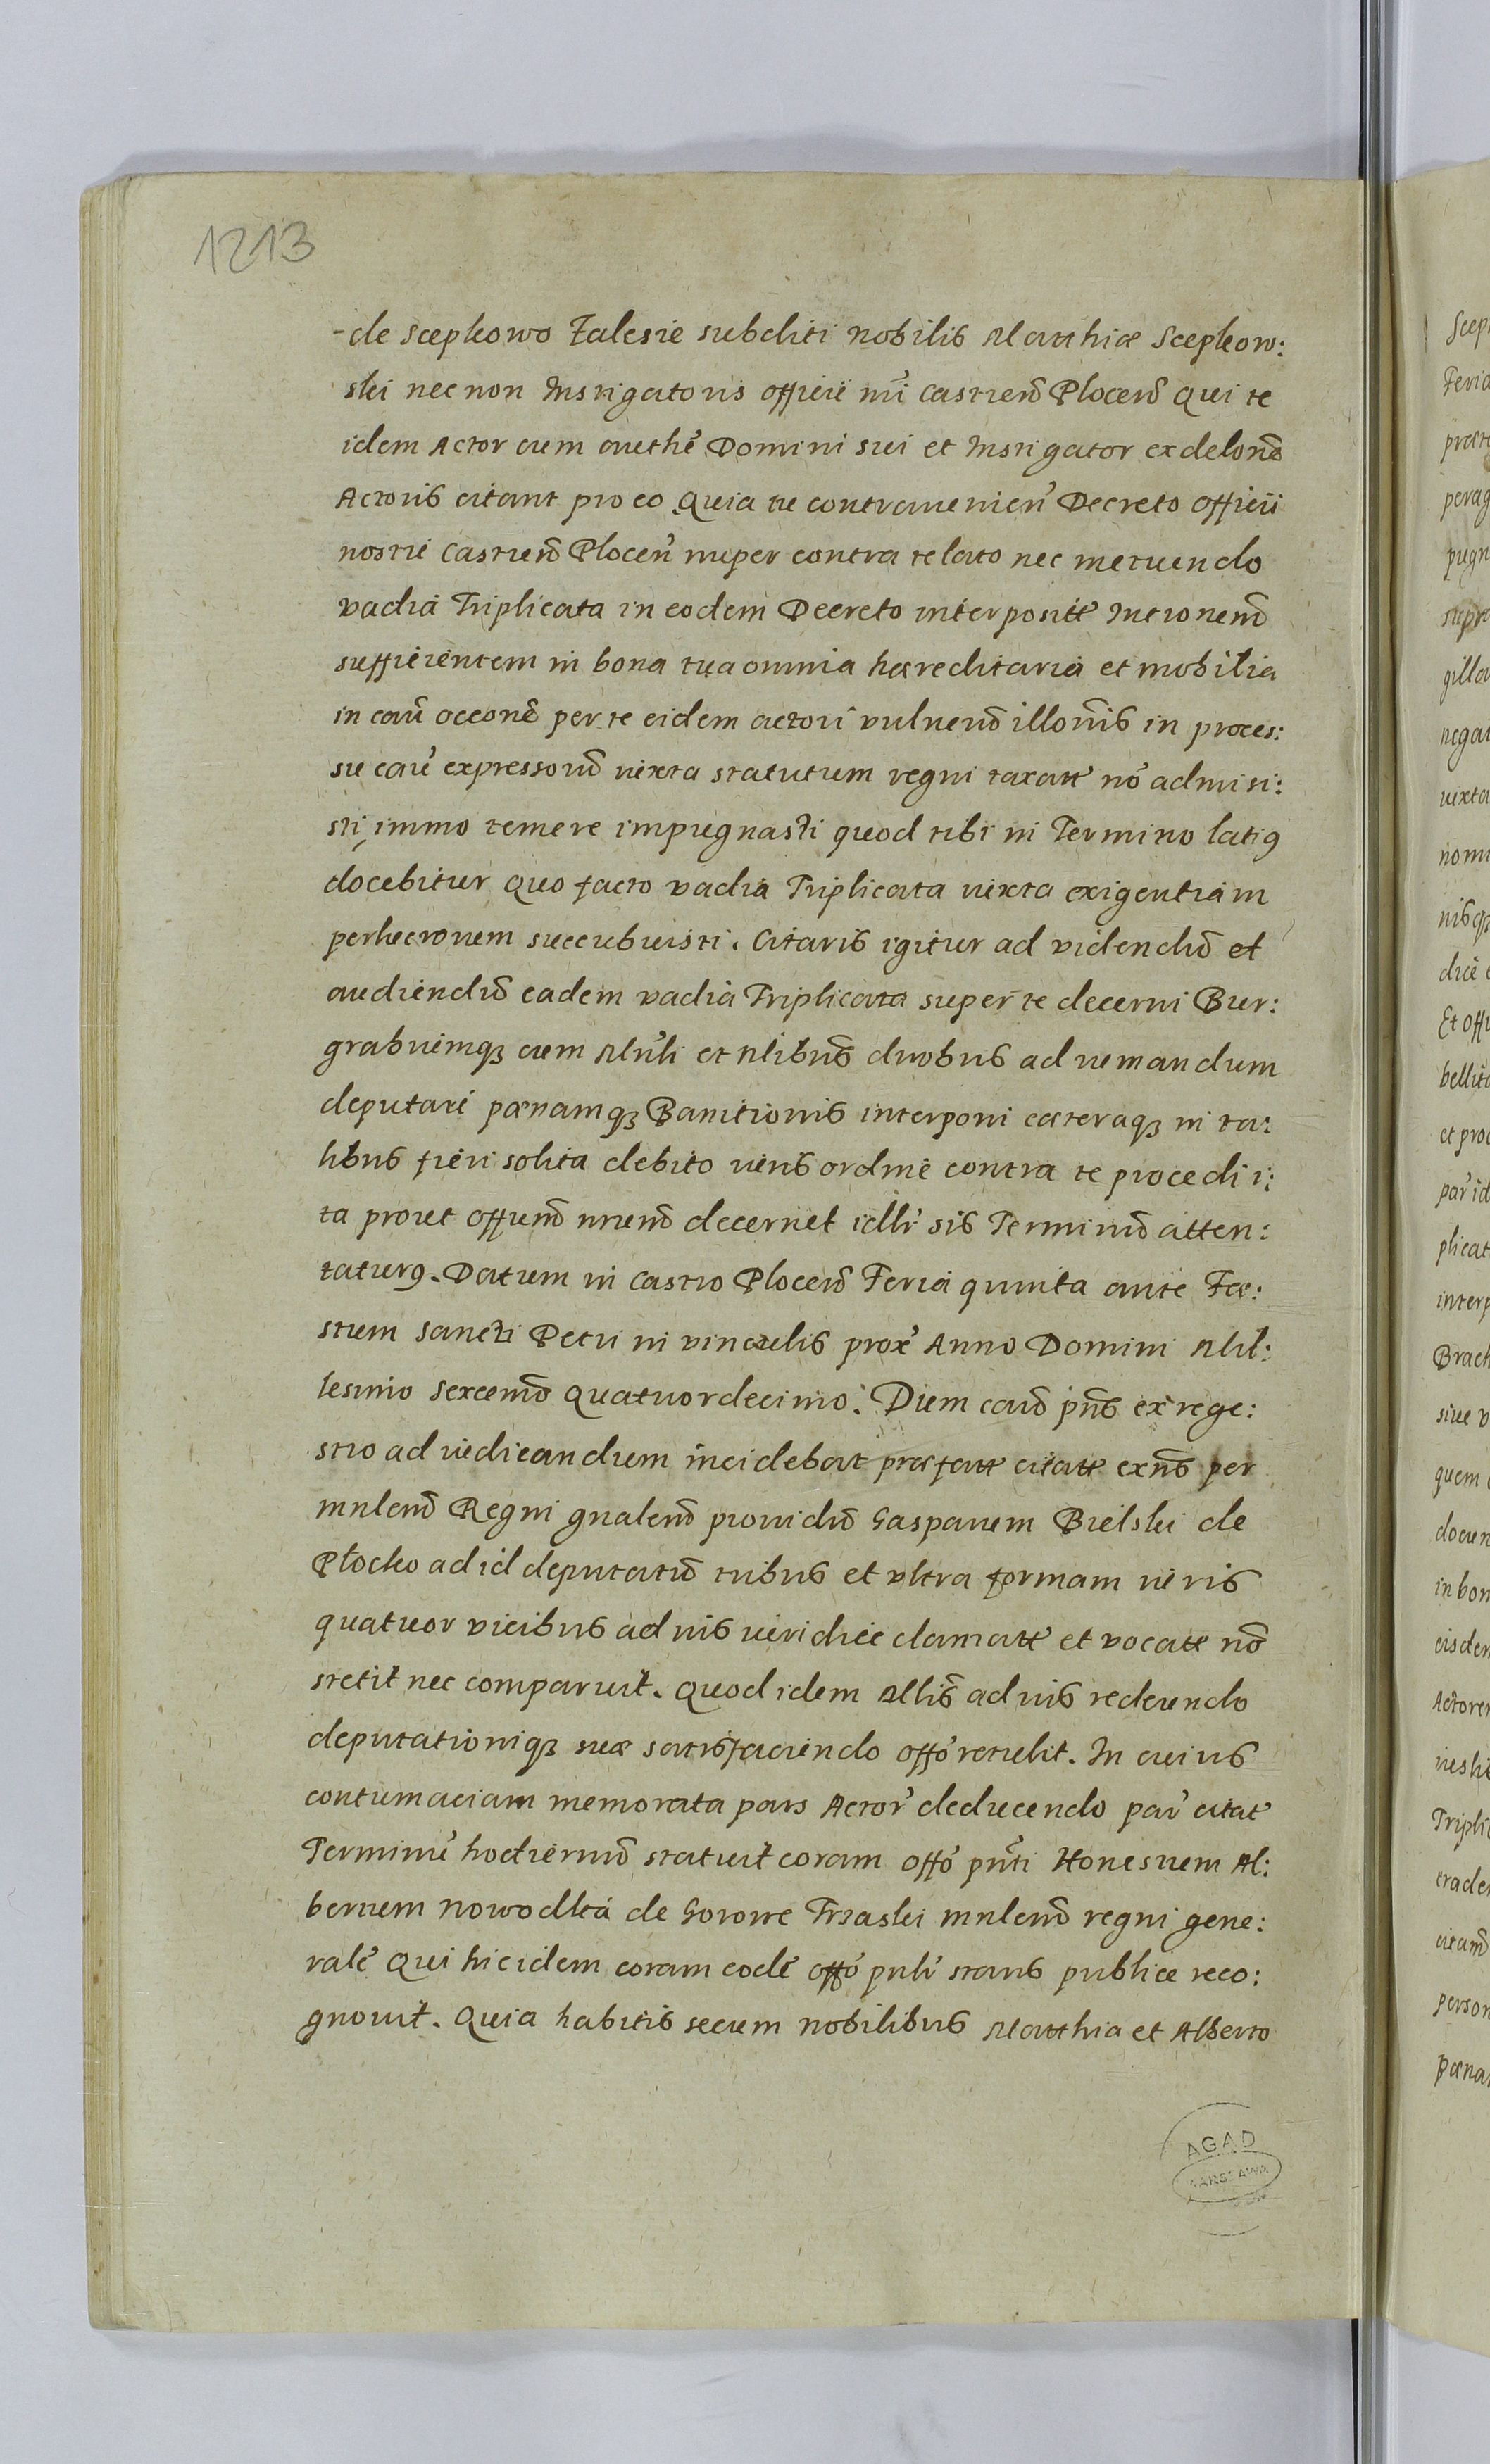 1213
-de Scepkowo Zalesie subditi nobilis Matthiæ Scepkow:
ski nec non Instigatoris officii nri Castren Plocen Qui te
idem Actor cum authe Domini sui et Instigator ex delone
Actoris citant pro eo Quia tu contrauenien Decreto officii
nostri Castren Plocen nuper contra te lato nec metuendo
vadia Triplicata in eodem Decreto interposit Intronem
sufficientem in bona tua omnia hæreditaria et mobilia
in cau occone per te eidem actori vulneru illonis in proces:
su cau expressoru iuxta statutum regni taxat no admisi:
sti, immo temere impugnasti quod tibi in Termino latiꝰ
docebitur quo facto vadia Triplicata iuxta exigentiam
perlucronem succubuisti. Citaris igitur ad videndu et
audiendu eadem vadia Triplicata super te decerni Bur:
grabiumqꝫ cum Mnli et Nlibus duobus ad iuuandum
deputari pœnamqꝫ Banitionis interponi cæteraqꝫ in ta:
libus fieri solita debito iuris ordine contra te procedi i:
ta prout offium nrum decernet illi sis Terminu atten:
taturꝰ. Datum in Castro Plocen Feria quinta ante Fe:
stum Sancti Petri in vinculis prox Anno Domini Mil:
lesimo Sexcenmo Quatuordecimo. Diem caus pns ex rege:
stro ad iudicandum incidebat præfat citat exns per
mnlem Regni gnalem prouidu Gasparem Bielski de
Płocko ad id deputatu tribus et vltra formam iuris
quatuor vicibus ad iuis iuridice clamat et vocat no
stetit nec comparuit. Quod idem Mlis ad iuis redeundo
deputationiqꝫ suæ satisfaciendo offo retulit. In cuius
contumaciam memorata pars Actor deducendo par citat
Terminu hodiernu statuit coram offo pnti Honestum Al:
bertum Nowodlka de Gorowe Trzaski mnlem regni gene:
rale Qui hic idem coram eode offo pnli stans publice reco:
gnouit. Quia habitis secum nobilibus Matthia et Alberto
AGAD
WARSZAWA
Scep
Feria
præte
perag
pugn
supr
gilla
nega
iuxta
nomi
nisqꝫ
dice
Et offi
bellit
et pro
par id
plicat
interp
Brach
siue v
quem
docum
in bon
eisdem
Actorem
Tripli
citam
person
pœna